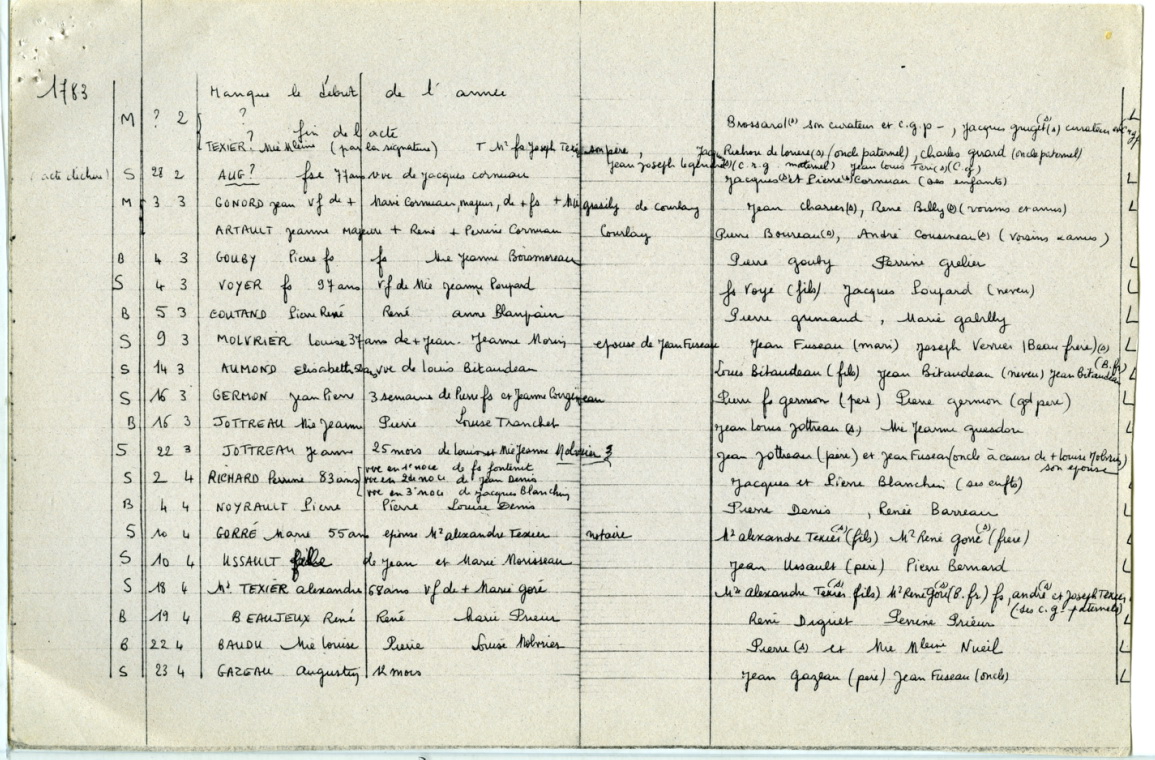 1783 Manque le début de l'année
M ? 2 ? Brossard (s) son curateur et c.g.p -, Jacques gruget (s) curateur et c.g.p L
? fin de l'acte
TEXIER Mie Mleine (par la signature) + Me fs Joseph Texier son père, (s) (oncle paternel), charles girard (oncle paternel)
Jean Joseph (s) (c.r.g maternel) Jean Louis (s) (C.g)
(acte déchiré) S 28 2 AUG? fse 77 ans vve de Jacques cornuau Jacques (s) et Pierre (s) Cornuau (ses enfants) L
M 3 3 GONORD Jean vf de + Marie Cornuau, majeur, de + fs + Mie de Courlay Jean Charier (s), René Billy (s) (voisins et amis) L
ARTAULT Jeanne majeure + René + Perrine Cornuau Courlay Pierre Boureau (s), André Cousineau (s) (voisins & amis)
B 4 3 GOUBY Pierre fs fs Mie Jeanne Boismoreau Pierre gouby Perrine grelier L
S 4 3 VOYER fs 97 ans vf de Mie Jeanne Poupard fs Voye (fils) Jacques Poupard (neveu) L
B 5 3 COUTAND Pierre René René anne Blanpain Pierre grimaud, Marie gabilly L
S 9 3 MOLVRIER Louise 37 ans de + Jean - Jeanne Morin epouse de Jean Fuseau Jean Fuseau (mari) Joseph Verrier (Beau frere) (s) L
S 14 3 AUMOND Elisabeth vve de Louis Bitaudeau Louis Bitaudeau (fils) Jean Bitaudeau (neveu) Jean Bitaudeau (B.fr) L
S 16 3 GERMON Jean Pierre 3 semaine de Pierre fs et Jeanne Pierre fs germon (pere) Pierre germon (gd pere) L
B 16 3 JOTTREAU Mie Jeanne Pierre Louise Tranchet Jean Louis Jottreau (s) Mie Jeanne guesdon L
S 22 3 JOTTREAU Jeanne 25 mois de Louis et Mie Jeanne Molvrier 3 Jean Jottreau (pere) et Jean Fuseau (oncle à cause de + Louise Molvrier) L
son epouse
S 2 4 RICHARD Perrine 83 ans vve en 1e noce de fs fontenit Jacques et Pierre Blanchin (ses enfts) L
vve en 2de noce de Jean Denis
vve en 3e noce de Jacques Blanchin
B 4 4 NOYRAULT Pierre Pierre Louise Denis Pierre Denis, Renée Barreau L
S 10 4 GORRÉ Marie 55 ans epouse Me alexandre Texier notaire Me alexandre Texier (s) (fils) Me René Goré (s) (frere) L
S 10 4 USSAULT fille de Jean et Marie Morisseau Jean Ussault (pere) Pierre Bernard L
S 18 4 Me. TEXIER alexandre 68 ans vf de + Marie goré Me alexandre Texier (s) (fils) Me René Goré (s) (B.fr) fs, andré (s) et Joseph Texier L
(ses c.g. paternels)
B 19 4 BEAUJEUX René René Marie Prieur René Diguet Perrine Prieur L
B 22 4 BAUDU Mie Louise Pierre Louise Molvrier Pierre (s) et Mie Mleine Nueil L
S 23 4 GAZEAU Augustin 12 mois Jean gazeau (pere) Jean Fuseau (oncle) L